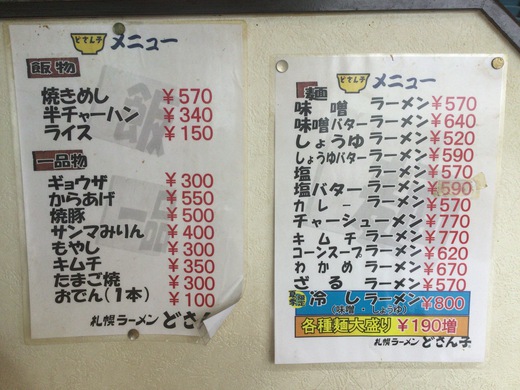 どさん子 メニュー
飯物
焼きめし ¥570
半チャーハン ¥340
ライス ¥150
一品物
ギョウザ ¥300
からあげ ¥550
焼豚 ¥500
サンマみりん ¥400
もやし ¥300
キムチ ¥350
たまご焼 ¥300
おでん(1本) ¥100
札幌ラーメン どさん
どさん子 メニュー
麺
味噌 ラーメン ¥570
味噌バターラーメン ¥640
しょうゆ ラーメン ¥520
しょうゆバターラーメン ¥590
塩 ラーメン ¥570
塩バター ラーメン ¥590
カレー ラーメン ¥570
チャーシューメン ¥770
キムチ ラーメン ¥770
コーンスープラーメン ¥620
わかめ ラーメン ¥670
ざる ラーメン ¥570
冷し ラーメン ¥800
(味噌・しょうゆ)
各種麺大盛り ¥190増
札幌ラーメン どさん子